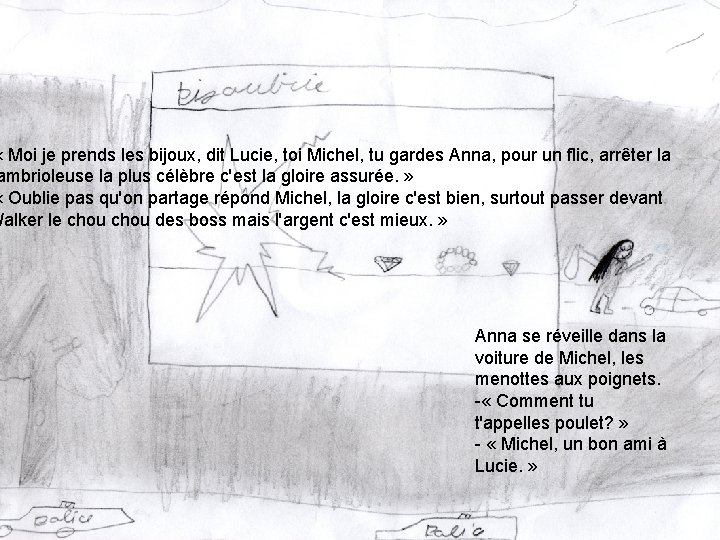 Bisoutrie
« Moi je prends les bijoux, dit Lucie, toi Michel, tu gardes Anna, pour un flic, arrêter la
ambrioleuse la plus célèbre c'est la gloire assurée. »
« Oublie pas qu'on partage répond Michel, la gloire c'est bien, surtout passer devant
Walker le chou chou des boss mais l'argent c'est mieux. »
Anna se réveille dans la
voiture de Michel, les
menottes aux poignets.
-« Comment tu
t'appelles poulet? »
- « Michel, un bon ami à
Lucie. »
Police
Police